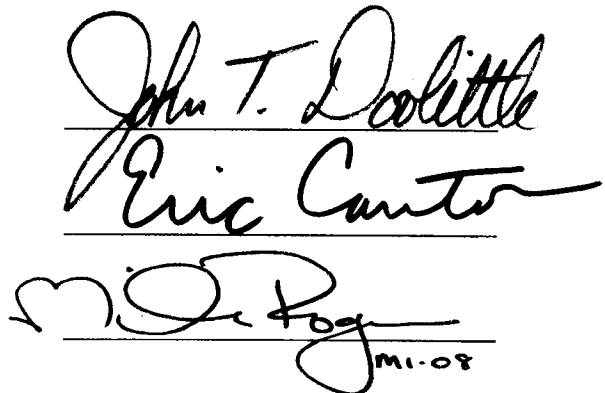 John T. Doolittle
Eric Cantor
Mike Rogers
MI-08